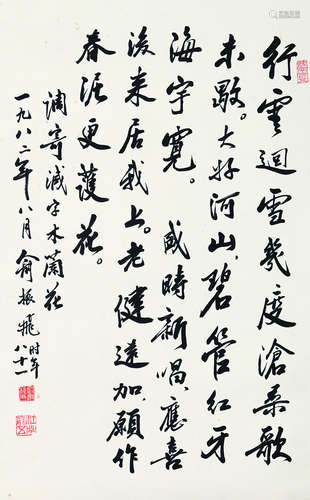 行雲迴雪幾度滄桑歌
未歇。大好河山，碧管紅牙
海宇寬。盛時新唱，應喜
後來居我上。老健加，願作
春泥更護花。
調寄減字木蘭花
一九八二年八月俞振飛时年
八十一